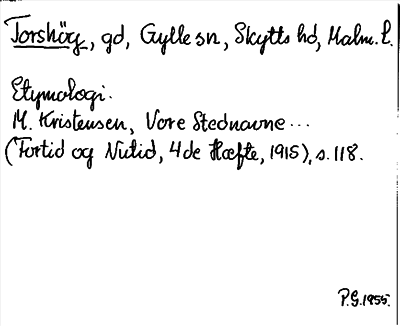 Torshög, gd, Gylle sn, Skytts hd, Malm. l.
Etymologi.
M. Kristensen, Vore Stednavne...
(Fortid og Nutid, 4de Hæfte, 1915), s. 118.
P.G. 1955.